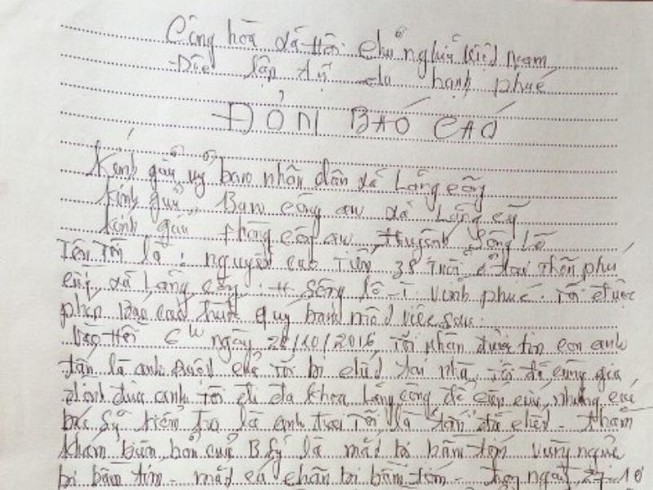 Cộng hòa xã hội chủ nghĩa Việt Nam
Độc lập tự do hạnh phúc
ĐƠN BÁO CÁO
Kính gửi uỷ ban nhân dân xã Lãng công
Kính gửi Ban công an xã Lãng cg
Kính gửi phòng công an Huyện Sông Lô
Tên Tôi là: nguyễn cao Tiến 38 Tuổi ở tại thôn phú
xã Lãng công - H Sông lô - T Vĩnh phúc. Tôi được
phép báo cáo quý ban một việc sau:
Vào Hồi 6h ngày 28/10/2016 Tôi nhận được tin con anh
là anh ruột của Tôi bị chết tại nhà, Tôi đã cùng gia
đình đưa anh Tôi đi đa khoa Lãng công để cấp cứu, nhưng
bác sỹ kiểm tra là anh Tôi là đã chết. Thăm
khám của B sỹ là mặt bị bầm tím vùng ngực
bị bầm tím - chân bị bầm tím. ngày 27-10